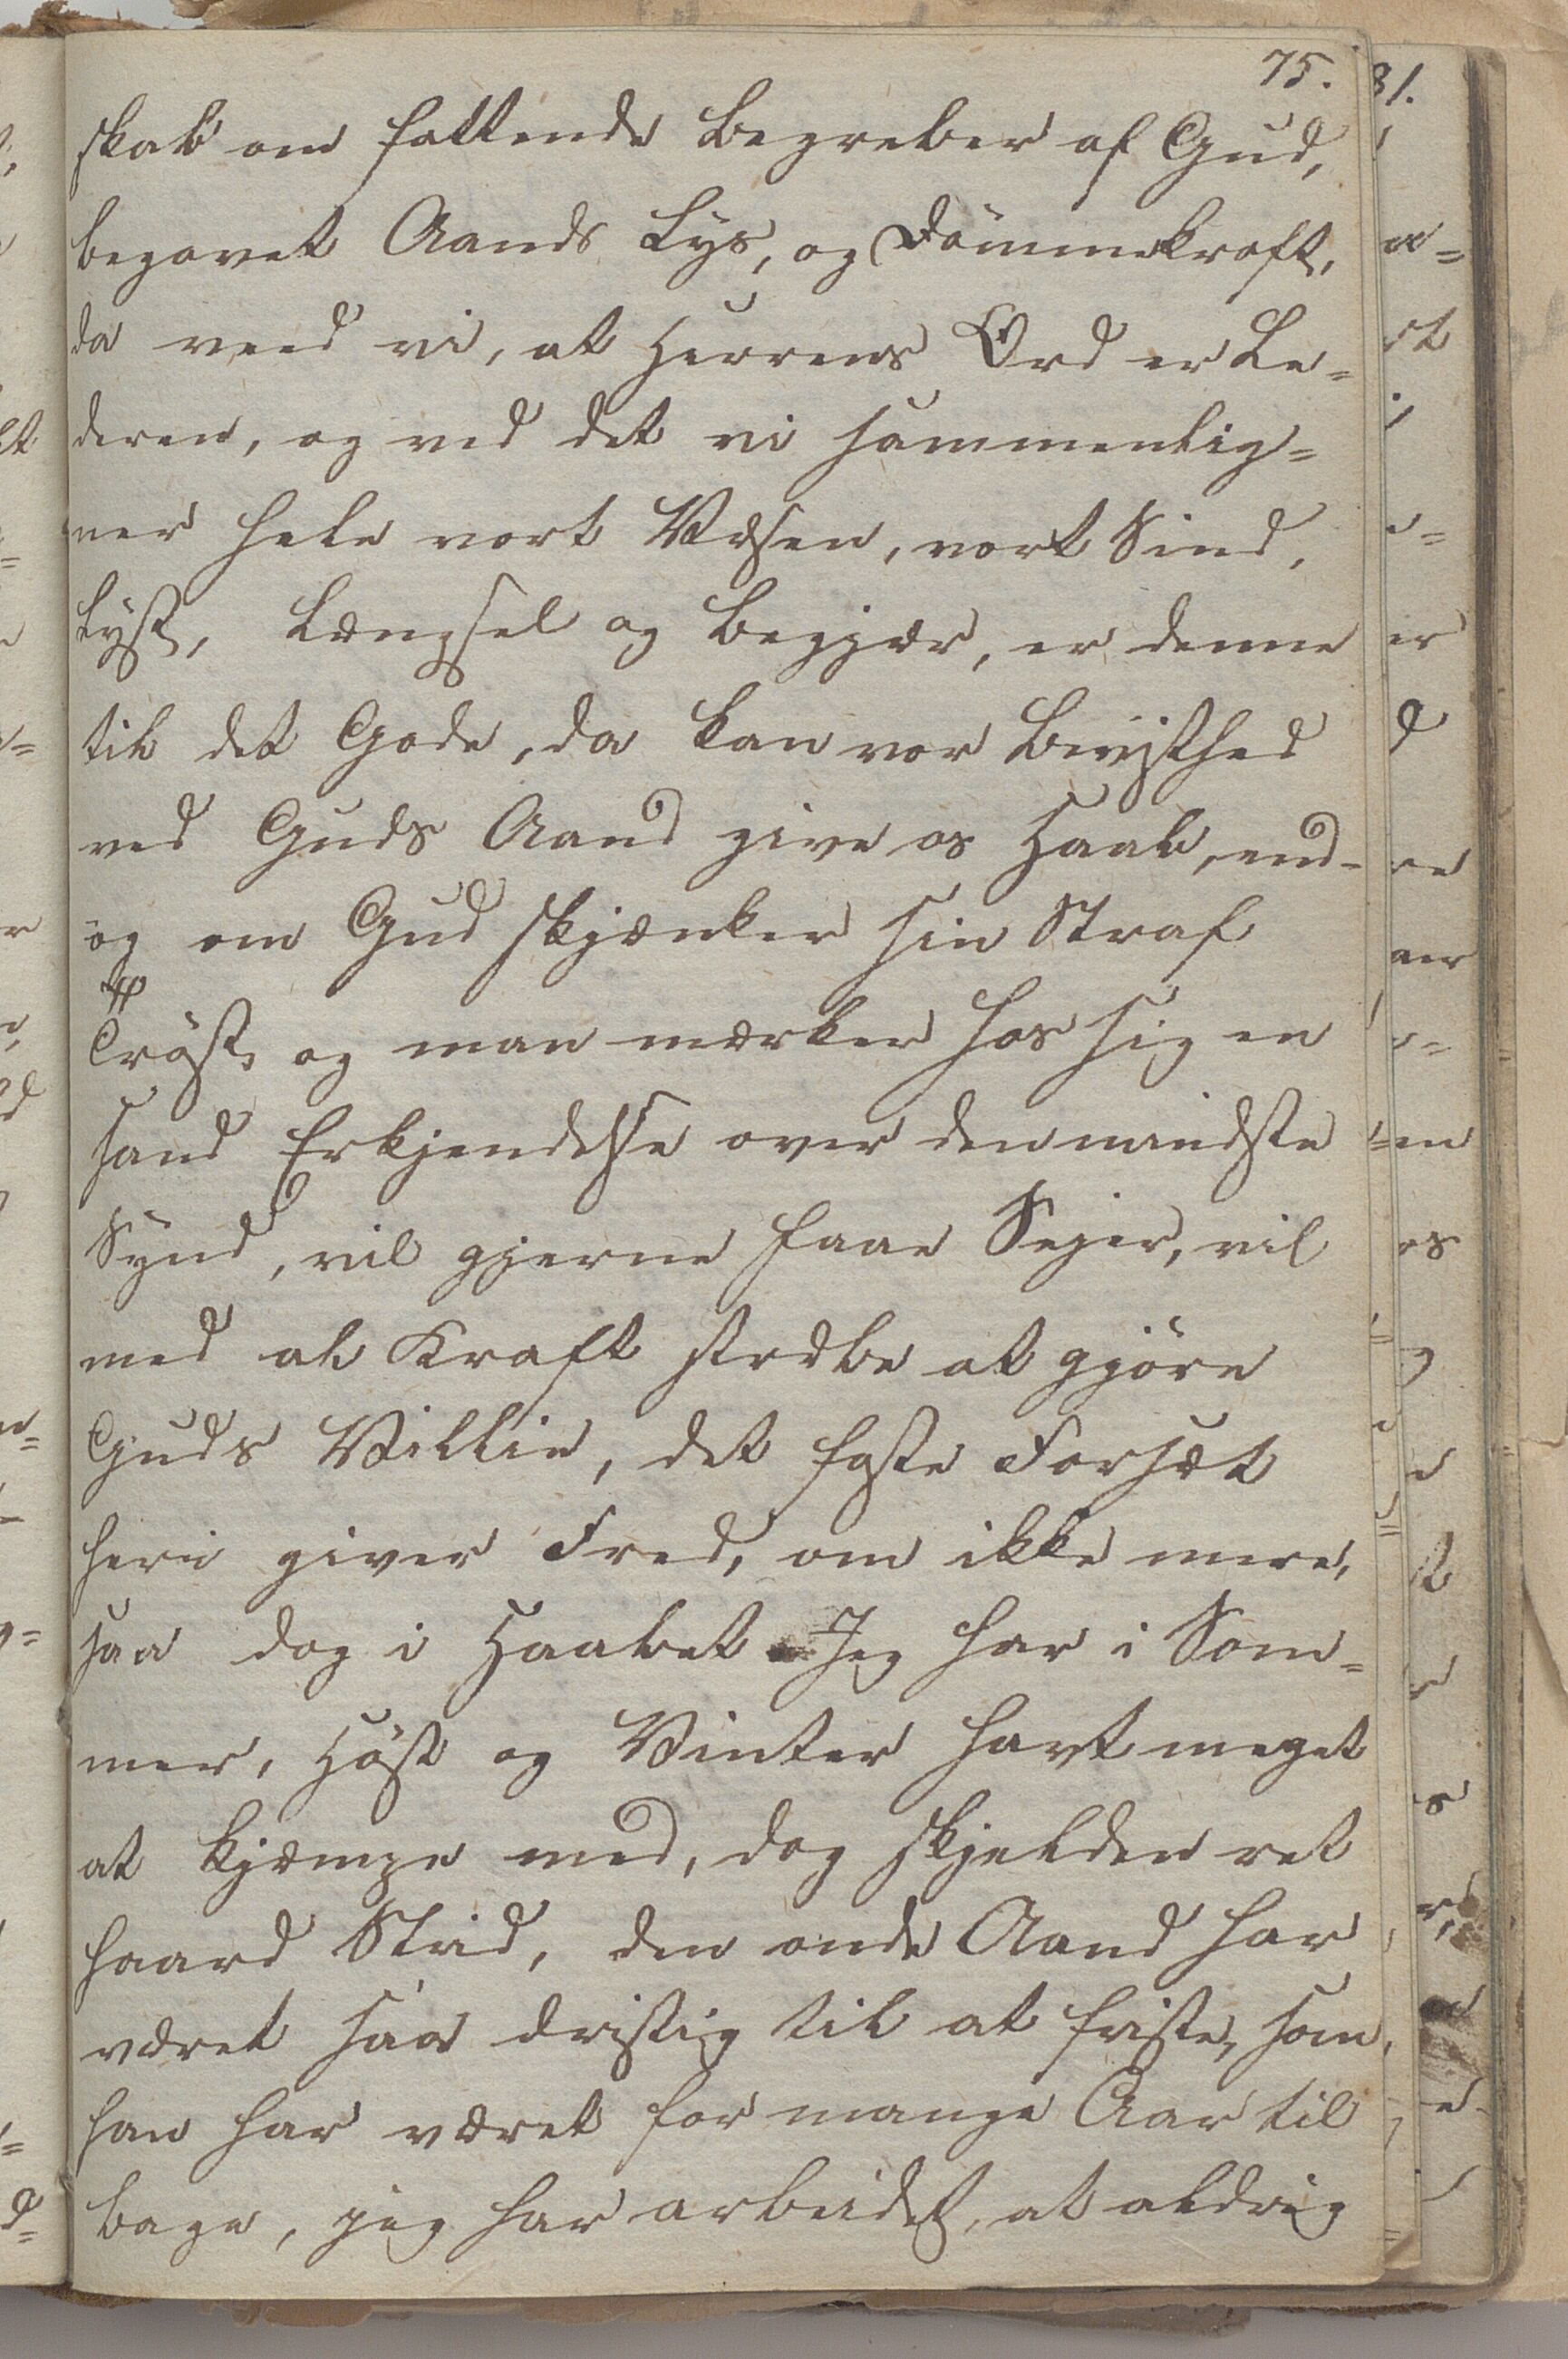 75.
skab om fattende Begreber af Gud,
begavet Aands Lys, og Dømmekraft,
da veed vi, at Herrens Ord er Le=
deren, og ved det vi sammenlig=
ner hele vort Væsen, vort Sind,
Lyst, Længsel og Begjær, er denne
til det Gode, da kan vor Bevisthed
ved Guds Aand give os Haab, end-
og om Gud skjænker sin Straf
Trøst, og man mærker hos sig en
sand Erkjendelse over den mindste
Synd, vil gjerne faae Sejer, vil
med al Kraft stræbe at gjøre
Guds Villie, det faste Forsæt
heri giver Fred, om ikke mere,
saa dog i Haabet. Jeg har i Som=
mer, Høst og Vinter havt meget
at kjæmpe med, dog skjelden ret
haard Strid, den onde Aand har
været saa dristig til at friste, som
han har været for mange Aar til
bage, jeg har arbeidet, at aldrig
81.